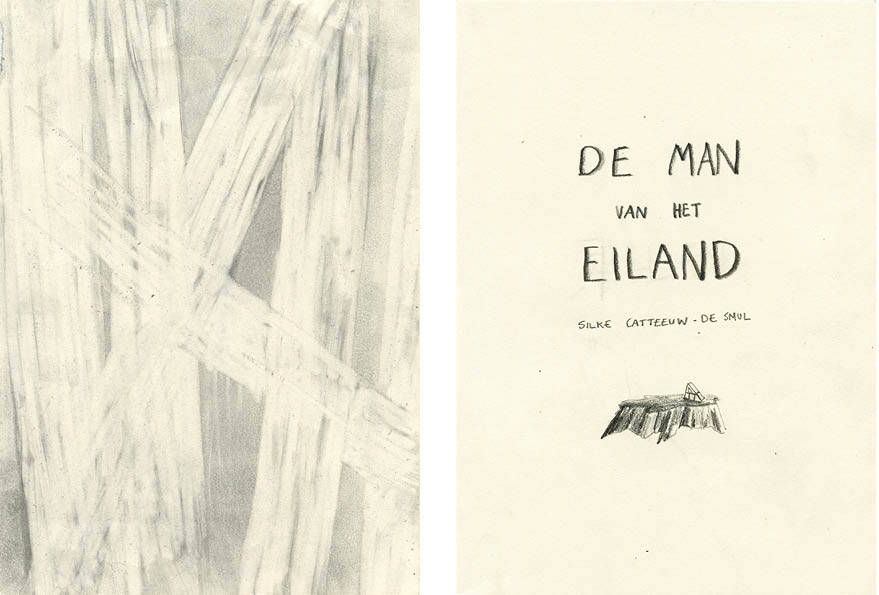 DE MAN
VAN HET
EILAND
SILKE CATTEEUW - DE SMUL